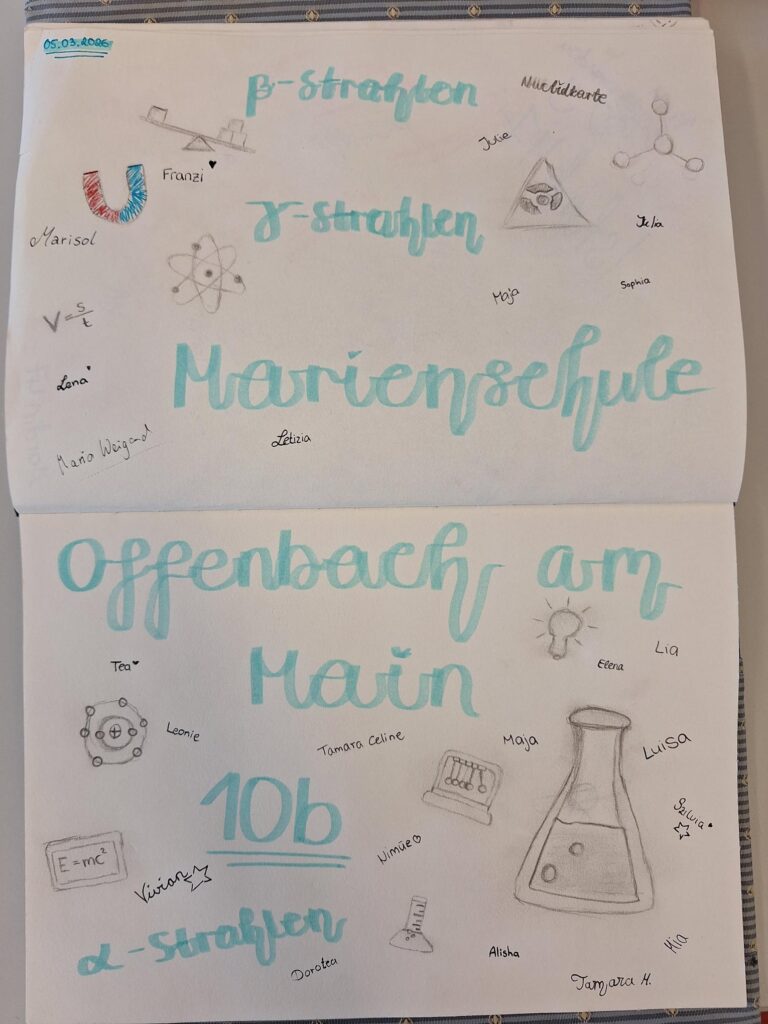 05.03.2026
β-Strahlen
Nuclidkarte
Julie
Franzi
γ-Strahlen
Marisol
Sophia
Maja
V = s/t
Marienschule
Lena
Letizia
Maria Weigand
Offenbach am
Main
Lia
Elena
Tea
Leonie
Tamara Celine
Maja
Luisa
10b
Szilvia
Nimüe
E = mc²
Vivian
α-Strahlen
Mia
Alisha
Dorotea
Tamara H.